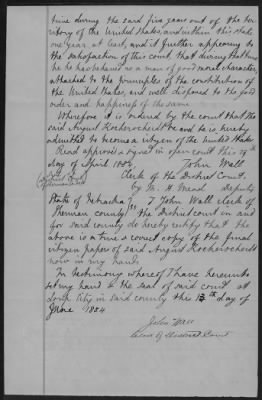 time during the said five years out of the ter-
ritory of the United States and within this state
one year at least, and it further appearing to
the satisfaction of this court, that during that time
he has behaved as a man of good moral character,
attached to the principles of the constitution of
the United States, and well disposed to the good
order and happiness of the same
Wherefore it is ordered by the court that the
said August be and he is hereby
admitted to become a citizen of the United States.
Read approved & signed in open court this
day of April 188 John Wall
Clerk of the District Court.
by M. H. Mead deputy
State of Nebraska I John Wall clerk of
Sherman county the district court in and
for said county do hereby certify that the
above is a true & correct copy of the final
citizen papers of said August
now in my hands
In testimony whereof I have hereunto
set my hand & the seal of said court at
Loup City in said county this 13th day of
June 1884
John Wall
Clerk of District Court